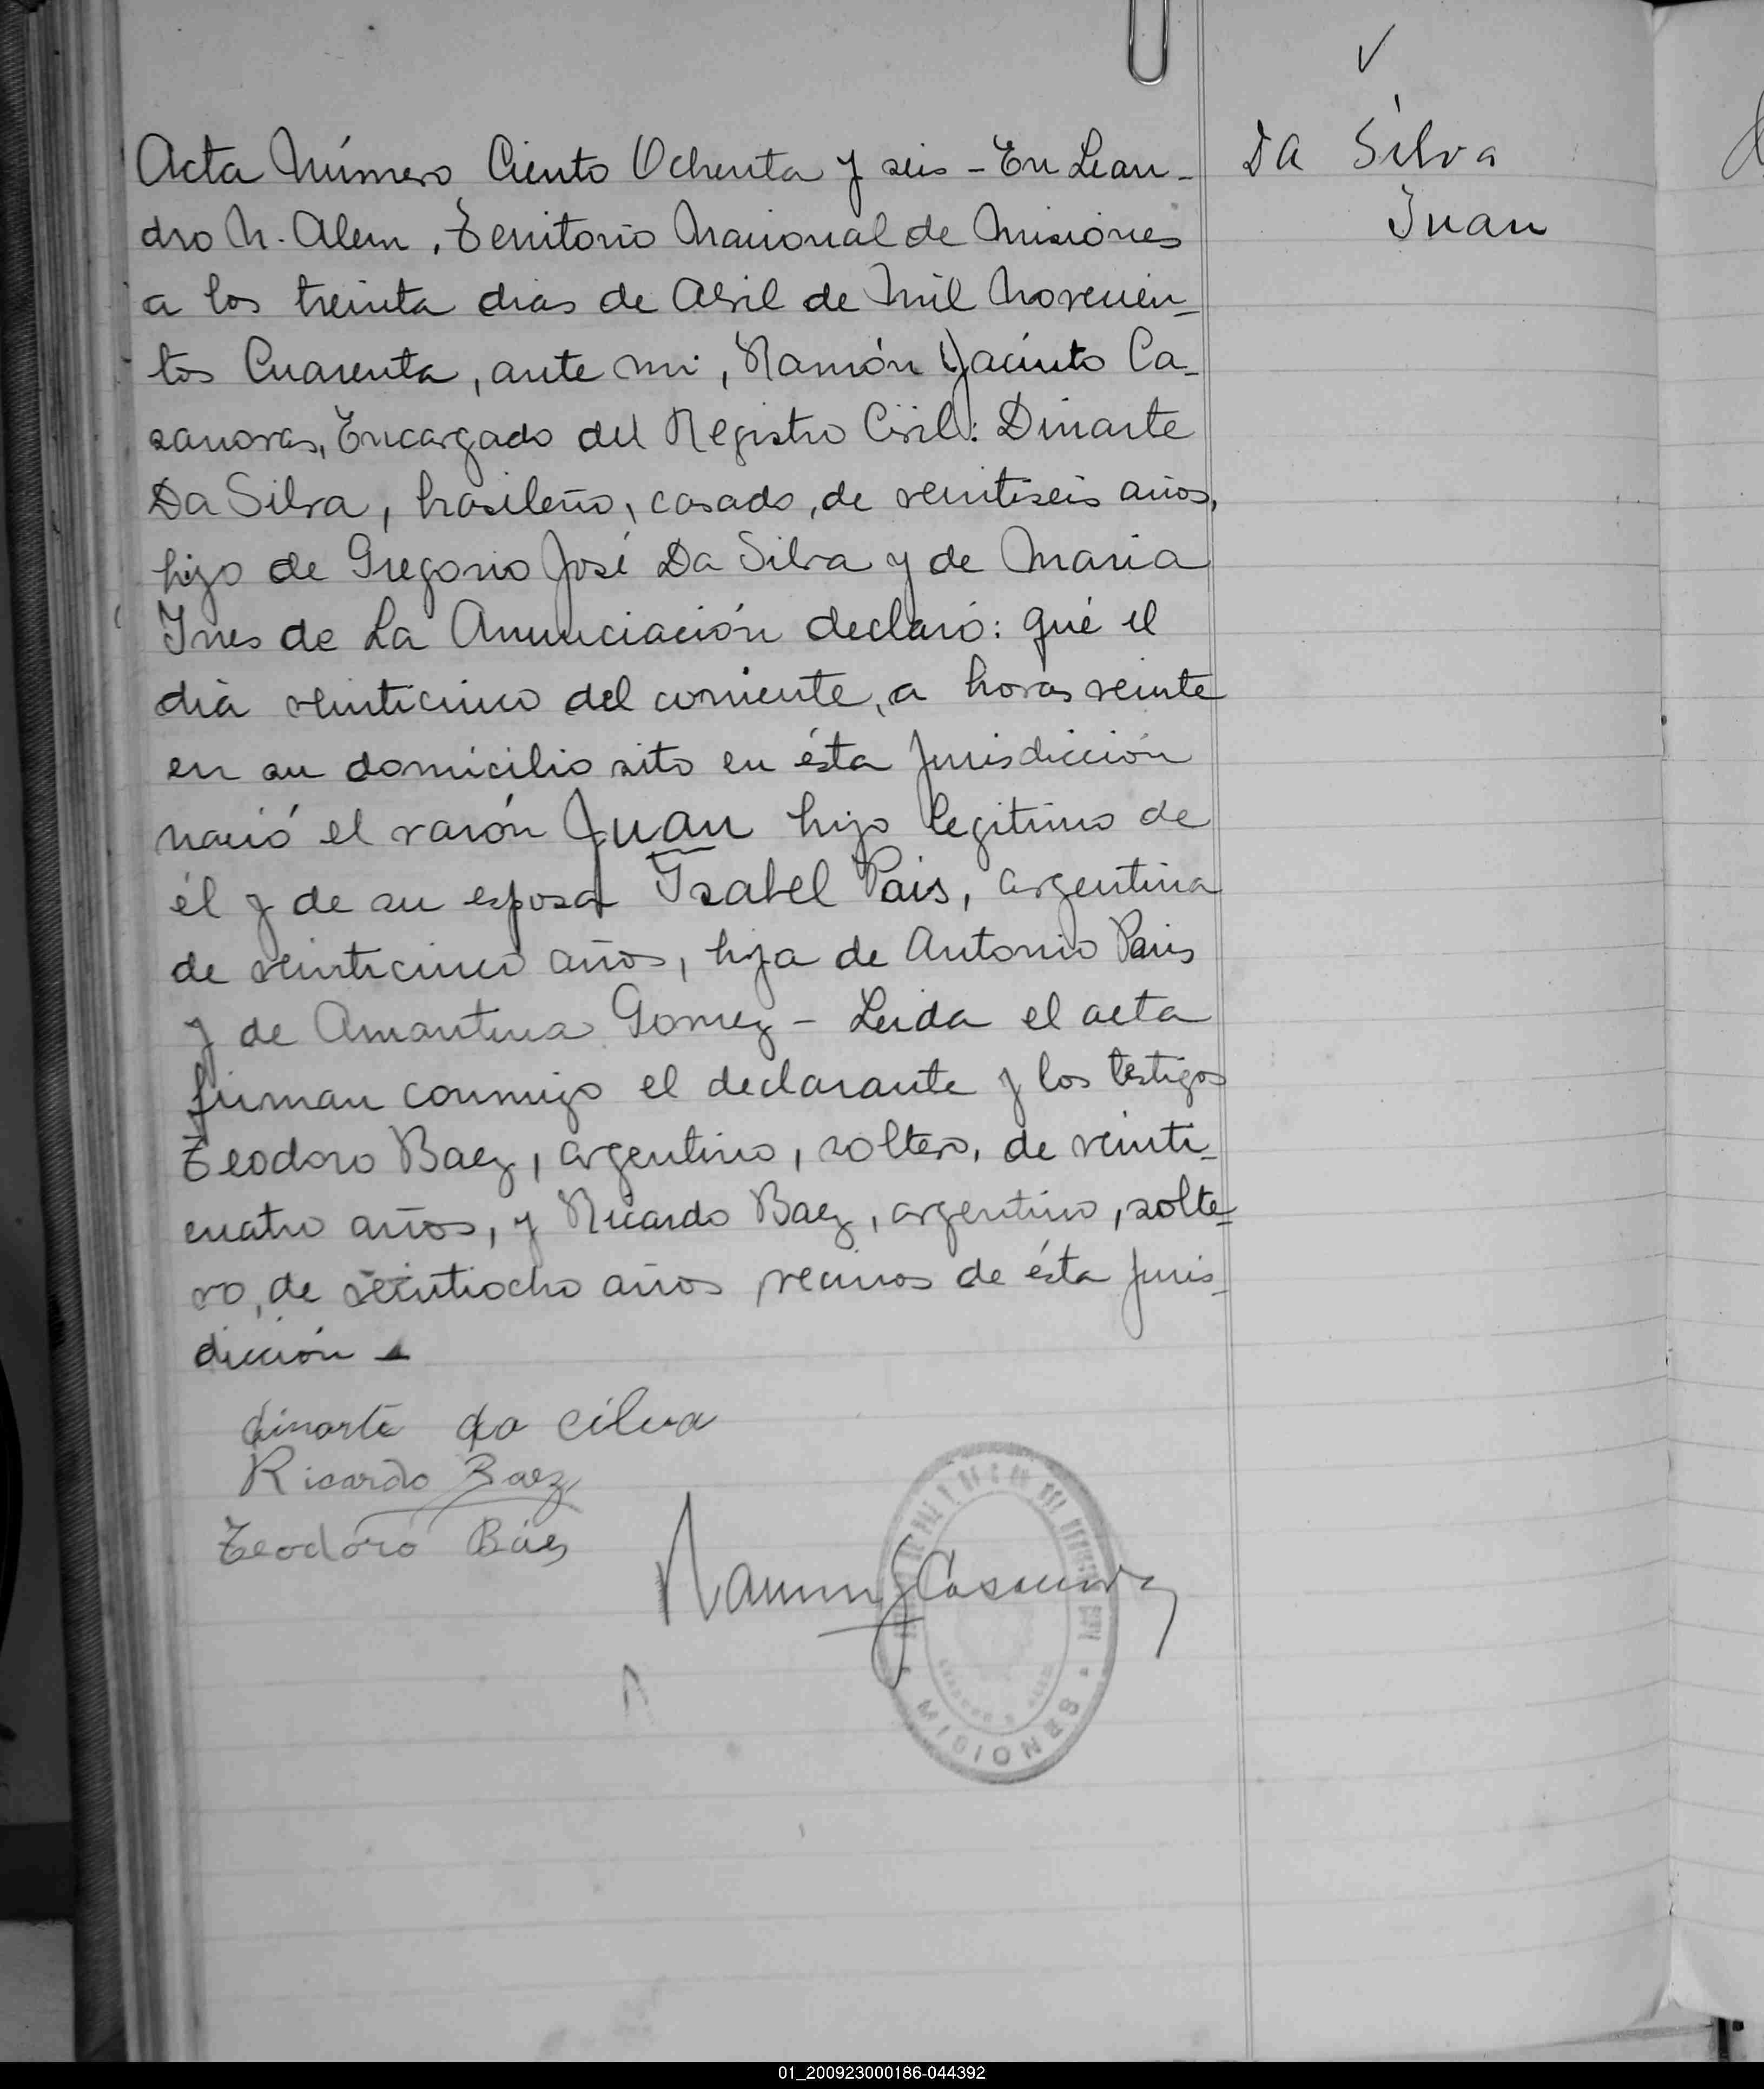 ✓
Da Silva
Juan
Acta Número Ciento Ochenta y seis - En Lean-
dro N. Alem, Territorio Nacional de Misiones
a los treinta dias de Abril de Mil Novecien-
tos Cuarenta, ante mi, Ramón Jacinto Ca-
sanovas, Encargado del Registro Civil: Dinarte
Da Silva, brasileño, casado, de veintiseis años,
hijo de Gregorio José Da Silva y de Maria
Ines de La Anunciación declaró: qué el
dia veinticinco del corriente, a horas veinte
en su domicilio sito en ésta Jurisdicción
nació el varón Juan hijo legitimo de
él y de su esposa Isabel Pais, argentina
de veinticinco años, hija de Antonio Pais
y de Amantina Gomez - Leida el acta
firman conmigo el declarante y los testigos
Teodoro Baez, argentino, soltero, de veinti-
cuatro años, y Ricardo Baez, argentino, solte-
ro, de veintiocho años, vecinos de ésta Juris-
dicción -
dinarte da cilva
Ricardo Baez
Teodoro Báez
Ramon J Casanovas
MISIONES
01_200923000186-044392